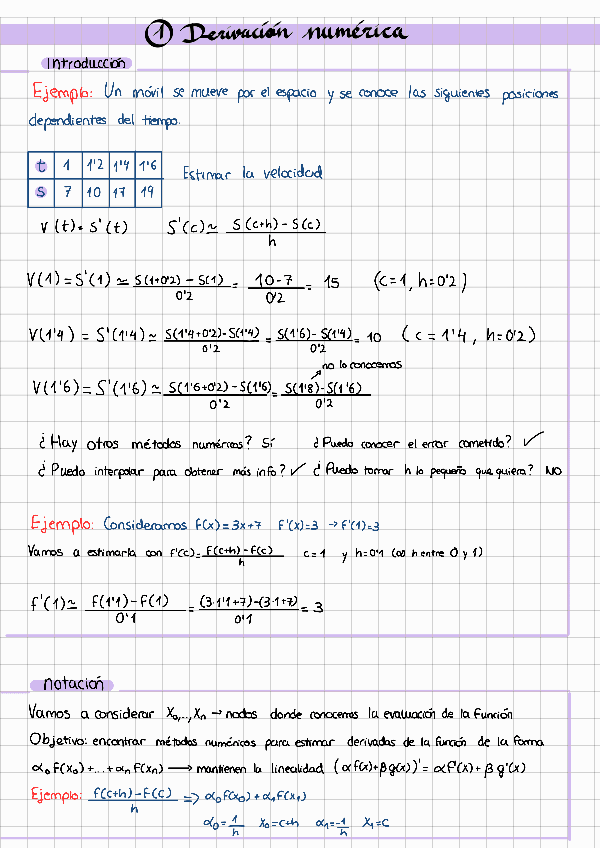 ① Derivación numérica
Introducción
Ejemplo: Un móvil se mueve por el espacio y se conoce las siguientes posiciones
dependientes del tiempo.
t 1 1'2 1'4 1'6
s 7 10 17 19
Estimar la velocidad
V(t) = S'(t) S'(c) ≃ S(c+h) - S(c) / h
V(1) = S'(1) ≃ S(1+0'2) - S(1) / 0'2 = 10-7 / 0'2 = 15 (c=1, h=0'2)
V(1'4) = S'(1'4) ≃ S(1'4+0'2)-S(1'4) / 0'2 = S(1'6)-S(1'4) / 0'2 = 10 (c=1'4, h=0'2)
no lo conocemos
V(1'6) = S'(1'6) ≃ S(1'6+0'2)-S(1'6) / 0'2 = S(1'8)-S(1'6) / 0'2
¿Hay otros métodos numéricos? Sí ¿Puedo conocer el error cometido? ✓
¿Puedo interpolar para obtener más info? ✓ ¿Puedo tomar h lo pequeño que quiera? NO
Ejemplo: Consideramos f(x)=3x+7 f'(x)=3 → f'(1)=3
Vamos a estimarla con f'(c)= f(c+h)-f(c) / h c=1 y h=0'1 (co h entre 0 y 1)
f'(1) ≃ f(1'1)-f(1) / 0'1 = (3·1'1+7)-(3·1+7) / 0'1 = 3
notación
Vamos a considerar X₀,..,Xₙ → nodos donde conocemos la evaluación de la función
Objetivo: encontrar métodos numéricos para estimar derivadas de la función de la forma
α₀f(x₀)+...+αₙf(xₙ) ⟶ mantienen la linealidad (αf(x)+βg(x))' = αf'(x)+βg'(x)
Ejemplo: f(c+h)-f(c) / h => α₀f(x₀)+α₁f(x₁)
α₀=1/h X₀=c+h α₁=-1/h X₁=c